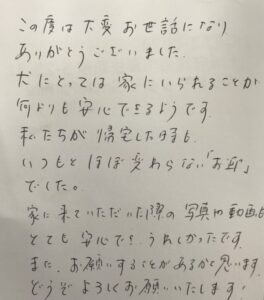 この度は大変お世話になり
ありがとうございました.
犬にとっては家にいられることが
何よりも安心できるようです.
私たちが帰宅した時も、
いつもとほぼ変わらない「お迎」
でした。
家に来ていただいた際の写真や動画も
とても安心でき、うれしかったです.
また、お願いすることがあるかと思います.
どうぞよろしくお願いいたします!